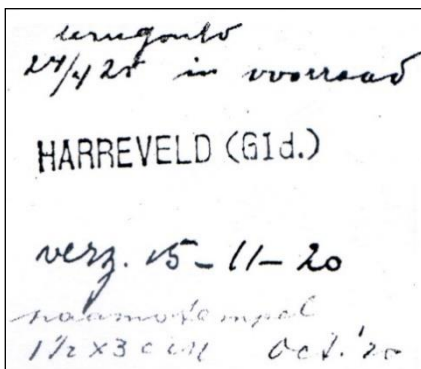 24/4 25 in voorraad
HARREVELD (Gld.)
verz. 15-11-20
naamstempel
1½ x 3 cM Oct. '20